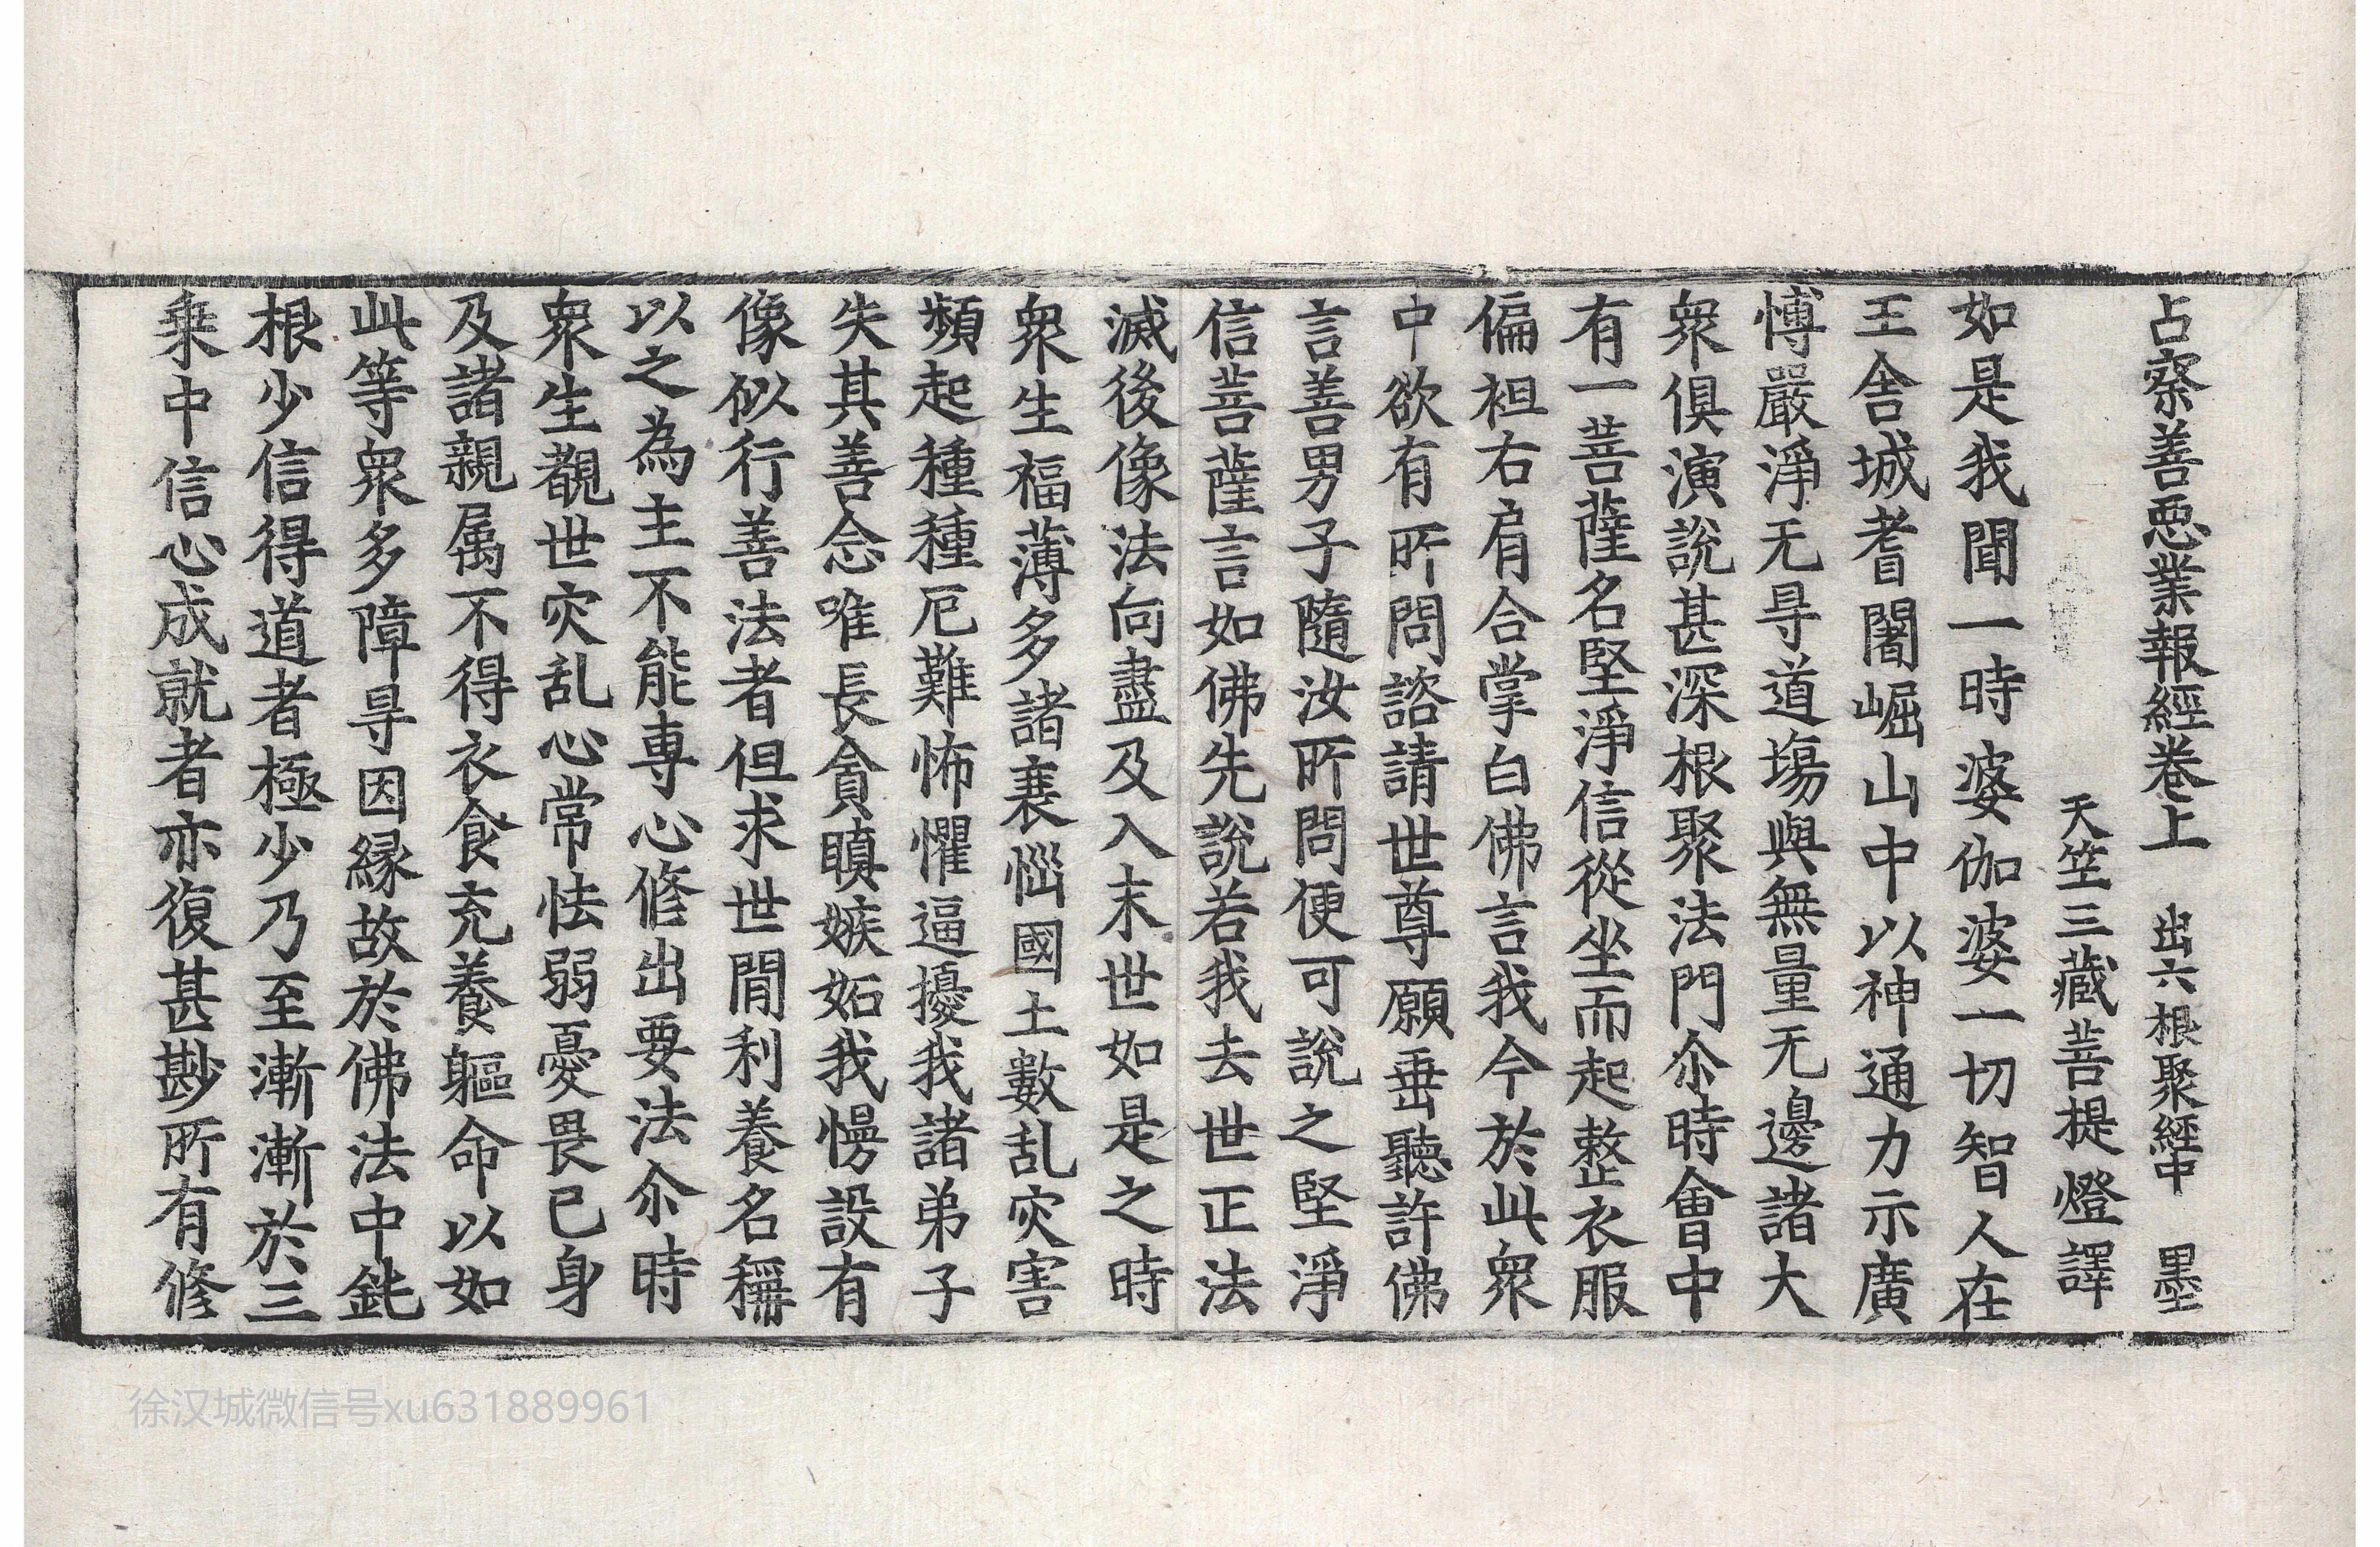 占察善惡業報經卷上 出六根聚經中 墨
天竺三藏菩提燈譯
如是我聞一時婆伽婆一切智人在
王舍城耆闍崛山中以神通力示廣
愽嚴淨无㝵道塲與無量无邊諸大
衆俱演說甚深根聚法門尒時會中
有一菩薩名堅淨信從坐而起整衣服
偏袒右肩合掌白佛言我今於此衆
中欲有所問諮請世尊願垂聽許佛
言善男子隨汝所問便可說之堅淨
信菩薩言如佛先說若我去世正法
滅後像法向盡及入末世如是之時
衆生福薄多諸衰惱國土數乱灾害
頻起種種厄難怖懼逼擾我諸弟子
失其善念唯長貪瞋嫉妬我慢設有
像似行善法者但求世間利養名稱
以之為主不能專心修出要法尒時
衆生覩世灾乱心常怯弱憂畏已身
及諸親属不得衣食充養軀命以如
此等衆多障㝵因縁故於佛法中鈍
根少信得道者極少乃至漸漸於三
乘中信心成就者亦復甚尠所有修
徐汉城微信号xu631889961